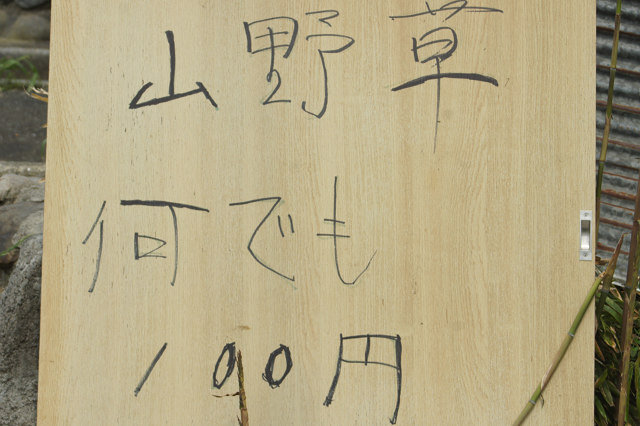 山野草
何でも
100円